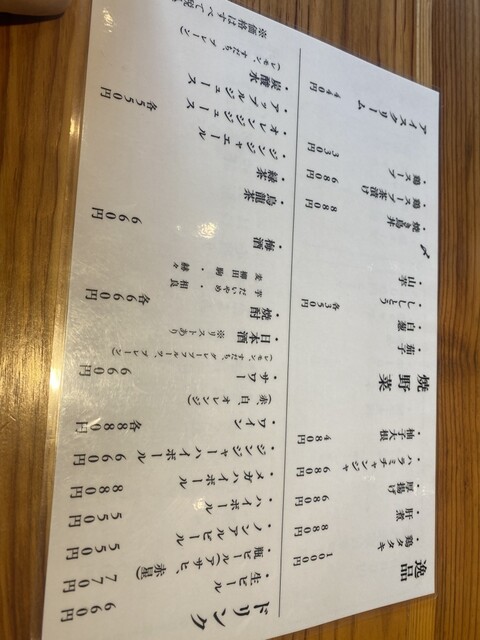 逸品
・鶏タタキ 1000円
・肝煮 880円
・厚揚げ 680円
・ハラミチャンジャ 680円
・柚子大根 480円
焼野菜
・茄子
・白葱
・ししとう 各350円
・山芋
〆
・焼き鳥丼 880円
・鶏スープ茶漬け 680円
・鶏スープ 330円
アイスクリーム 440円
ドリンク
・生ビール 660円
・瓶ビール(アサヒ、赤星) 770円
・ノンアルビール 550円
・ハイボール 550円
・メガハイボール 880円
・ジンジャーハイボール 660円
・ワイン 各880円
(赤、白、オレンジ)
・サワー 660円
(レモン、すだち、グレープフルーツ、プレーン)
・日本酒 ※リストあり
・焼酎 各660円
芋 だいやめ・相良
麦 柳田 駒・赫々
・梅酒 660円
・烏龍茶
・緑茶
・ジンジャエール
・オレンジジュース
・アップルジュース 各550円
炭酸水
(レモン、すだち、プレーン)
※価格はすべて税